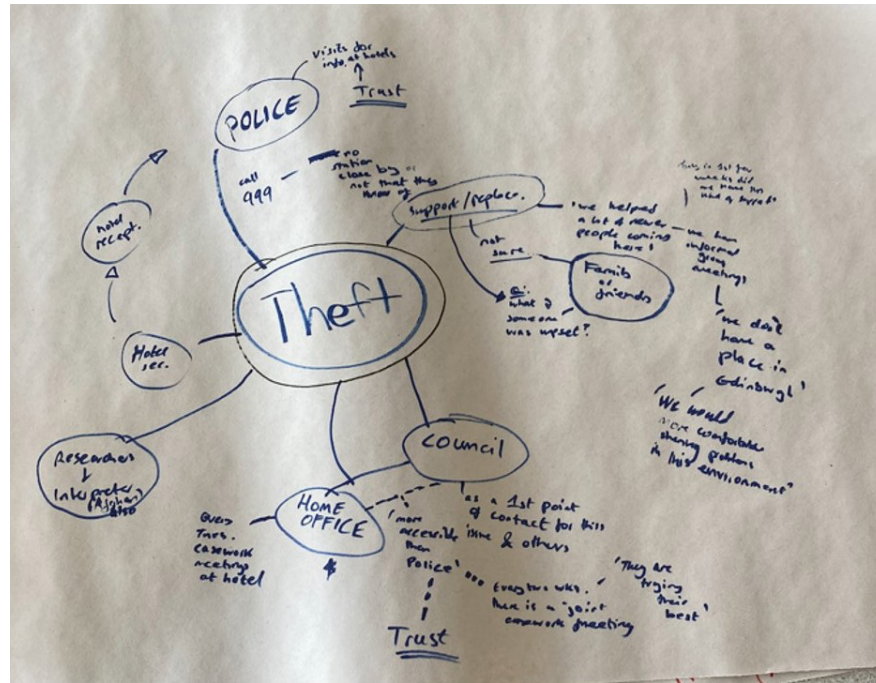 visits for
info. at hotels
Trust
POLICE
call
999
no
station
close by or
not that they
know of
hotel
recept.
Hotel
sec.
Theft
Support/replace.
not
sure
Family
or
friends
Q:
what if
someone
was upset?
'we helped
a lot of newer
people coming
here'
we have
informal
group
meetings
'we don't
have a
place in
Edinburgh'
'We would
more comfortable
sharing problems
in this environment'
Researchers
Interpreter
(Afghan)
also
COUNCIL
as a 1st point
of contact for this
issue & others
HOME
OFFICE
Every
Tues.
casework
meetings
at hotel
'more
accessible
than
Police'
Trust
Every two wks.
there is a 'joint
casework meeting
'They are
trying
their
best'